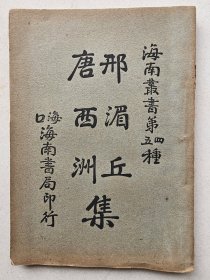 海南叢書第四五種
邢湄丘
唐西洲
集
海口海南書局印行